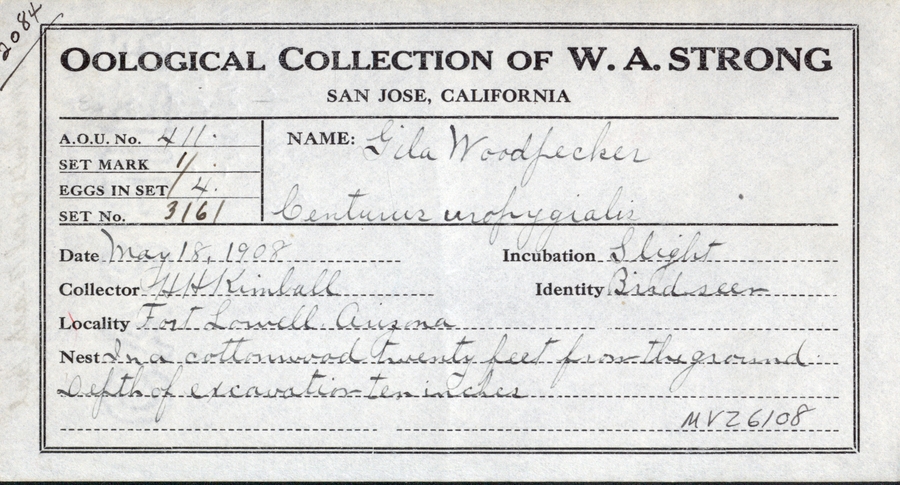 2084
OOLOGICAL COLLECTION OF W. A. STRONG
SAN JOSE, CALIFORNIA
A.O.U. No. 411.
NAME: Gila Woodpecker
SET MARK 1/.
EGGS IN SET 4.
SET No. 3161
Centurus uropygialis
Date May 18, 1908
Incubation Slight
Collector HHKimball
Identity Bird seen
Locality Fort Lowell Arizona
Nest In a cottonwood twenty feet from the ground
Depth of excavation ten inches
MVZ6108